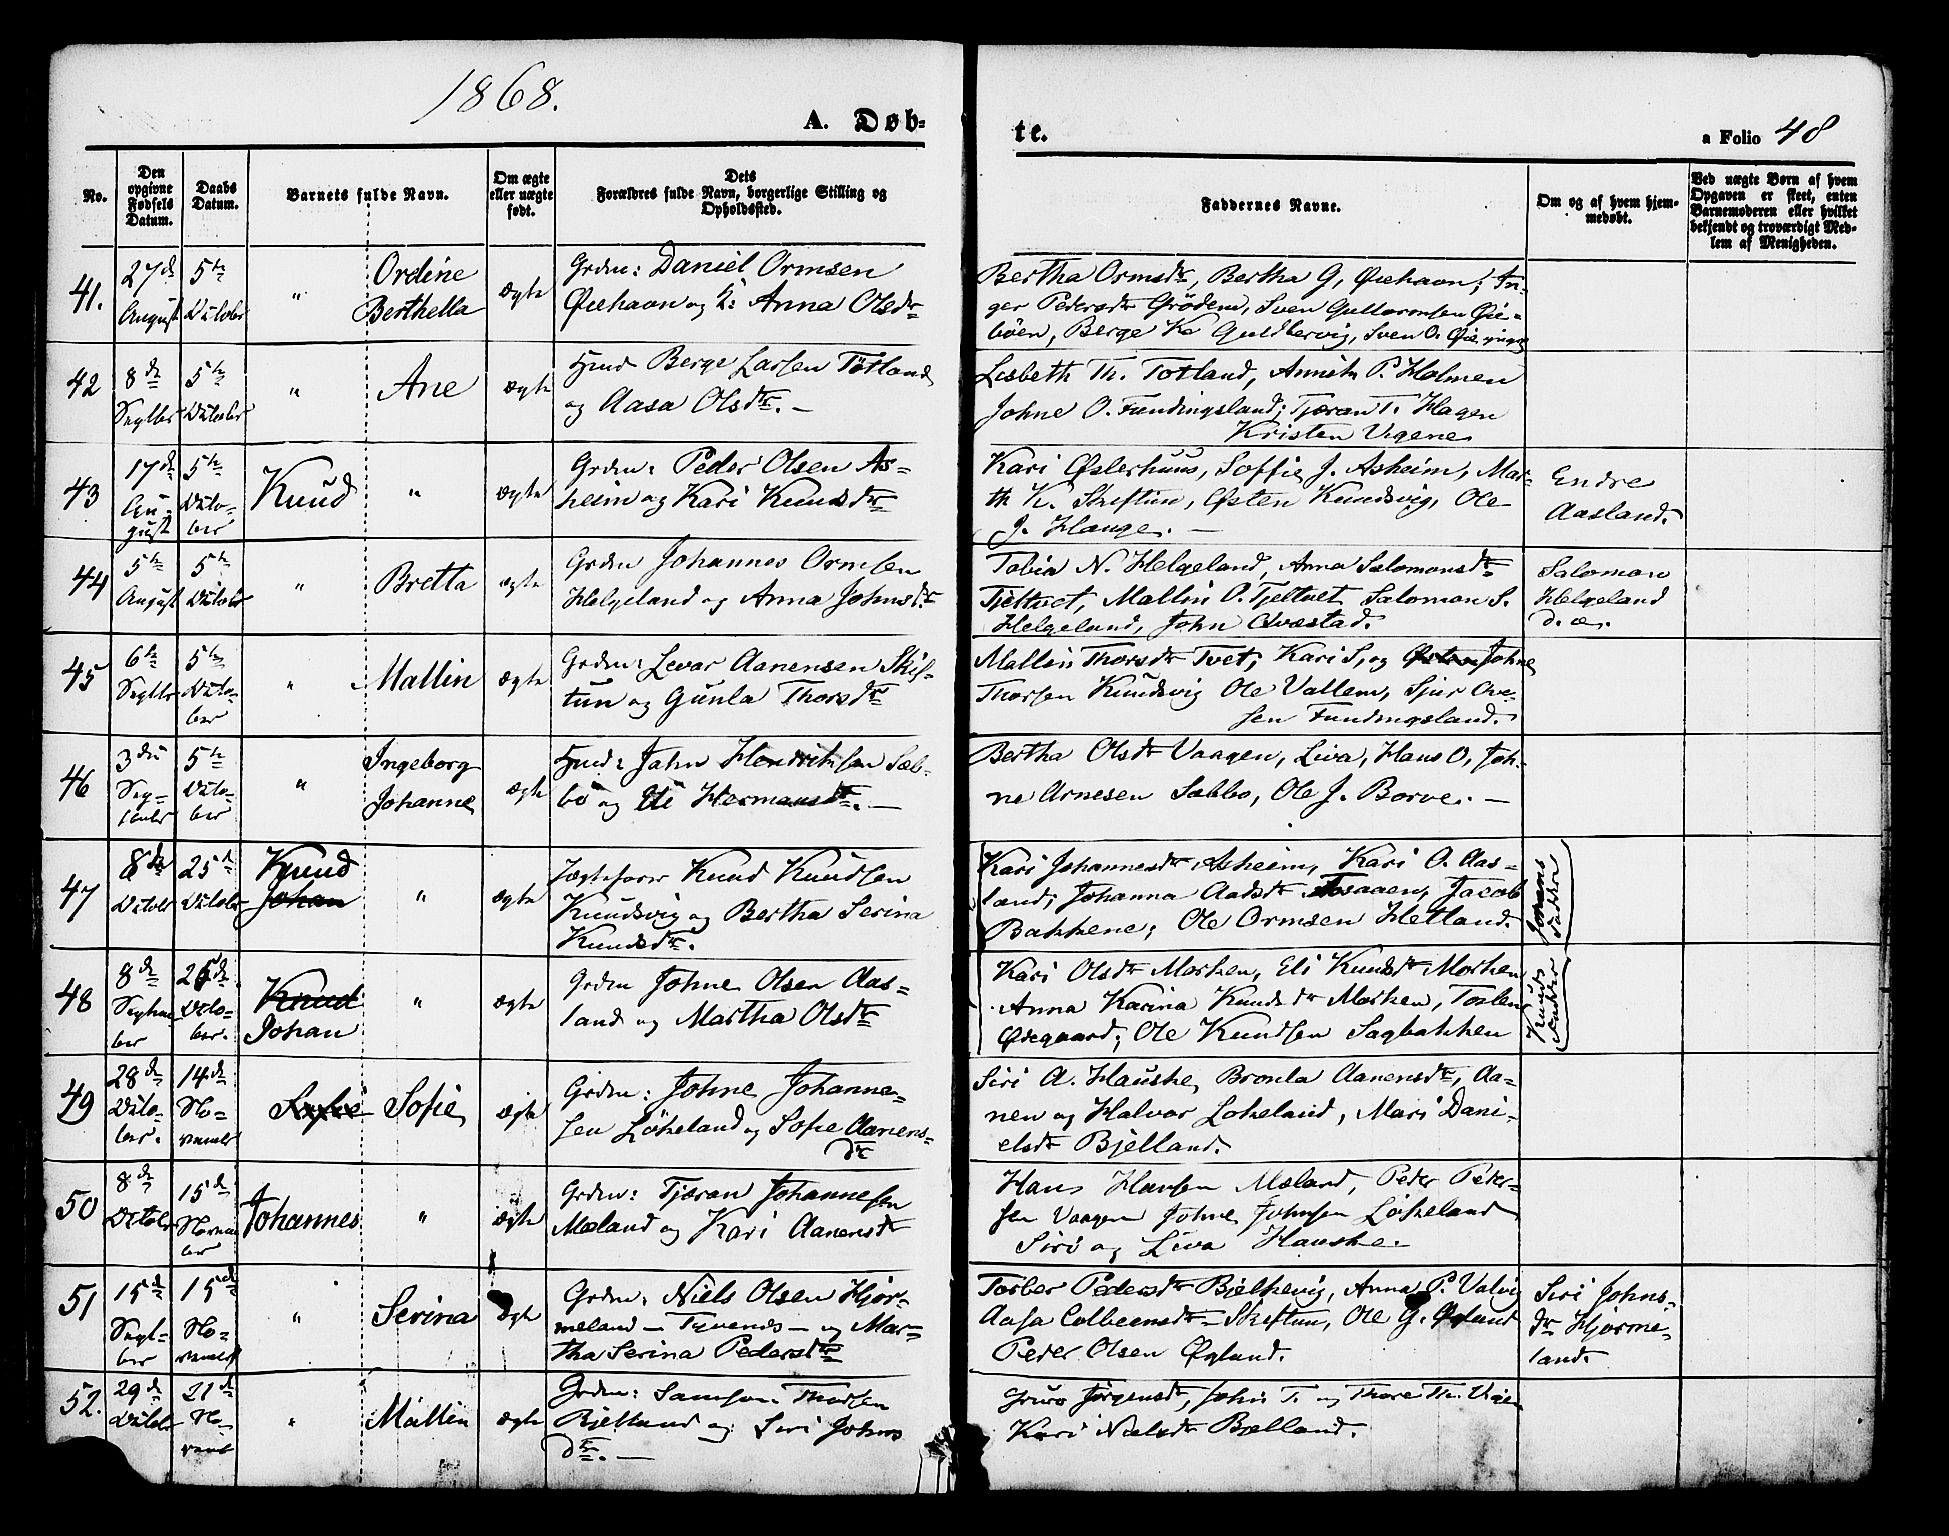 1868.
A. Døb-
te.
a Folio 48
No.
Den opgivne Fødsels Datum.
Daabs Datum.
Barnets fulde Navn.
Om ægte eller uægte født.
Dets Forældres fulde Navn, borgerlige Stilling og Opholdssted.
Faddernes Navne.
Om og af hvem hjemmedøbt.
Ved uægte Børn af hvem Opgaven er skeet, enten Barnemoderen eller hvilket bekjendt og troværdigt Medlem af Menigheden.
41.
27de August
5te October
"
Ordine
Berthella
ægte
Grdm: Daniel Ormsen
Øiehavn og K: Anna Olsdtr
Bertha Ormsdtr, Bertha G, Øiehavn; In-
ger Pedersdtr Grödem, Sven Guttormsen Øie-
böen, Berge K. Guldbervig, Sven O.
42
8de Septbr
5te October
"
Ane
ægte
Hmd Berge Larsen Tötland
og Aasa Olsdtr. –
Lisbeth Th. Totland, P. Holmen
Johne O. Fundingsland; Tjæran T. Hagen
Kristen Vigene
43
17de Au-
gust
5te Octo-
ber
Knud
"
ægte
Grdm: Peder Olsen As-
heim og Kari Knudsdtr
Kari Østerhuus, Soffie J. Asheim, Mar-
th K. Skiftun, Østen Knudsvig, Ole
J. Hauge. –
Endre
Aasland.
44
5te August
5te October
"
Bretta
ægte
Grdm Johannes Ormsen
Helgeland og Anna Johnsdtr.
Tobia N. Helgeland, Anna Salomonsdtr
Tjeltvet, Mallin O. Tjeltvet Salomon S.
Helgeland, John Qvæstad.
Salomon
Helgeland
d. æ.
45
6te Septbr
5te Octo-
ber
"
Mallin
ægte
Grdm: Levar Aanensen Skif-
tun og Gunla Thorsdtr
Mallin Thorsdtr Tvet, Kari S, og Østen Johne
Thorsen Knudsvig Ole Vallem, Sjur Ove-
sen Fundingsland.
46
3die Sep-
tember
5te Octo-
ber
"
Ingeborg
Johanne
ægte
Hmd: Jahn Hendriksen Sæb-
bø og Eli Hermansdtr. –
Bertha Olsdtr Vaagen, Liva, Hans O, Joh-
ne Arnesen Sæbbo, Ole J. Borve. –
47
8de October
25de October
Knud
Johan
"
ægte
Jægtefører Knud Knudsen
Knudsvig og Bertha Serina
Knudsdtr.
Kari Johannesdtr Asheim, Kari O. Aas-
land; Johanna Aadsdtr Jacob
Bakkene; Ole Ormsen Hetland.
Johans
Faddere
48
8de Septem-
ber
25de Octo-
ber.
Knud
Johan
"
ægte
Grdm Johne Olsen Aas-
land og Martha Olsdtr
Kari Olsdtr Morken, Eli Knudsdtr Morken
Anna Karina Knudsdtr Morken, Torlene
Ødegaard; Ole Knudsen Sagbakken
Knuds
Faddere
49
28de Octo-
ber.
14de No-
vember
Sofie
Sofie
ægte
Grdm: Johne Johanne-
sen Lökeland og Sofie Aanens-
dtr
Siri A. Hauske, Bronla Aanensdtr, Aa-
nen og Halvar Lokeland, Mari Dani-
elsdtr Bjelland.
50
8de October
15de Novem-
ber
Johannes
"
ægte
Grdm: Tjæran Johannesen
Mæland og Kari Aanensdtr
Hans Hansen Mæland, Peder Peder-
sen Vaagen Johne Johnsen Lökeland
Siri og Liva Hauske.
51
15de Septem-
ber
15de No-
vember
"
Serina
ægte
Grdm: Niels Olsen Hjör-
meland – – og Mar-
tha Serina Pedersdtr
Torber Pedersdtr Bjelkevig, Anna P. Valvi
Aasa Colbeensdtr Skiftun, Ole G. Øglund
Peder Olsen Øglund.
Siri Johns-
dtr Hjörme-
land.
52.
29de October
21de No-
vembr
"
Mallin
ægte
Grdm: Samson Thorsen
Bjelland og Siri Johns
dtr. –
Guro Jörgensdtr, John T. og Thore Th. Vigen
Kari Nielsdtr Bjelland.